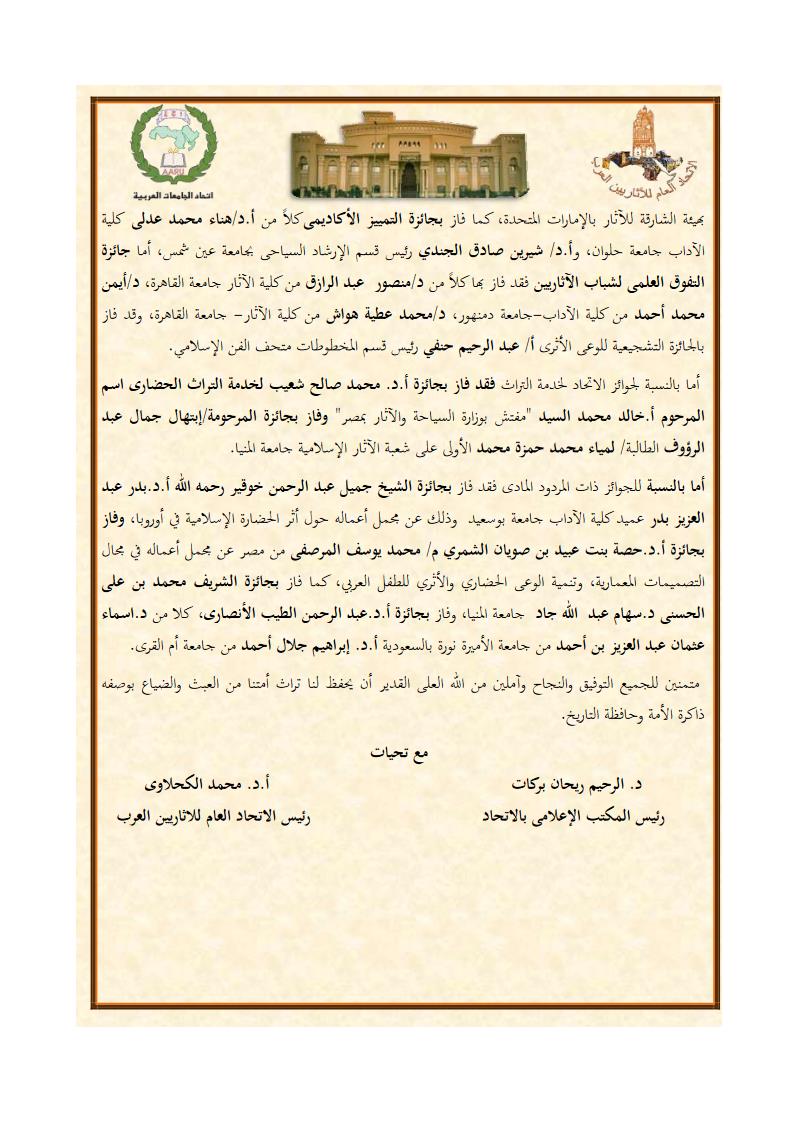 AARU
اتحاد الجامعات العربية
الاتحاد العام للآثاريين العرب
بهيئة الشارقة للآثار بالإمارات المتحدة، كما فاز بجائزة التمييز الأكاديمى كلاً من أ.د/هناء محمد عدلى كلية
الآداب جامعة حلوان، وأ.د/ شيرين صادق الجندي رئيس قسم الإرشاد السياحى بجامعة عين شمس، أما جائزة
التفوق العلمى لشباب الآثاريين فقد فاز بها كلاً من د/منصور عبد الرازق من كلية الآثار جامعة القاهرة، د/أيمن
محمد أحمد من كلية الآداب–جامعة دمنهور، د/محمد عطية هواش من كلية الآثار– جامعة القاهرة، وقد فاز
بالجائزة التشجيعية للوعى الأثرى أ/ عبد الرحيم حنفي رئيس قسم المخطوطات متحف الفن الإسلامي.
أما بالنسبة لجوائز الاتحاد لخدمة التراث فقد فاز بجائزة أ.د. محمد صالح شعيب لخدمة التراث الحضارى اسم
المرحوم أ.خالد محمد السيد "مفتش بوزارة السياحة والآثار بمصر" وفاز بجائزة المرحومة/إبتهال جمال عبد
الرؤوف الطالبة/ لمياء محمد حمزة محمد الأولى على شعبة الآثار الإسلامية جامعة المنيا.
أما بالنسبة للجوائز ذات المردود المادى فقد فاز بجائزة الشيخ جميل عبد الرحمن خوقير رحمه الله أ.د.بدر عبد
العزيز بدر عميد كلية الآداب جامعة بوسعيد وذلك عن مجمل أعماله حول أثر الحضارة الإسلامية في أوروبا، وفاز
بجائزة أ.د.حصة بنت عبيد بن صويان الشمري م/ محمد يوسف المرصفى من مصر عن مجمل أعماله في مجال
التصميمات المعمارية، وتنمية الوعى الحضاري والأثري للطفل العربي، كما فاز بجائزة الشريف محمد بن على
الحسنى د.سهام عبد الله جاد جامعة المنيا، وفاز بجائزة أ.د.عبد الرحمن الطيب الأنصارى، كلا من د.اسماء
عثمان عبد العزيز بن أحمد من جامعة الأميرة نورة بالسعودية أ.د. إبراهيم جلال أحمد من جامعة أم القرى.
متمنين للجميع التوفيق والنجاح وآملين من الله العلى القدير أن يحفظ لنا تراث أمتنا من العبث والضياع بوصفه
ذاكرة الأمة وحافظة التاريخ.
مع تحيات
د. الرحيم ريحان بركات
أ.د. محمد الكحلاوى
رئيس المكتب الإعلامى بالاتحاد
رئيس الاتحاد العام للاثاريين العرب